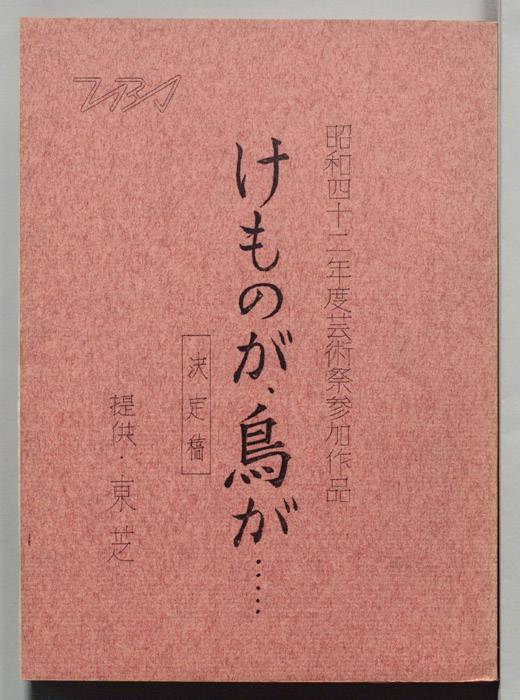 TBS
昭和四十二年度芸術祭参加作品
けものが、鳥が……
決定稿
提供・東芝